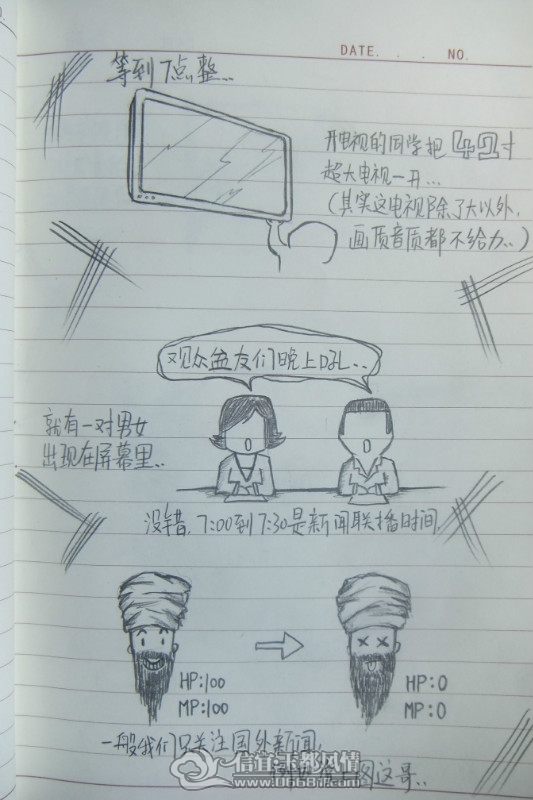 DATE. . . . NO.
等到7点整..
开电视的同学把42寸
超大电视一开...
(其实这电视除了大以外,
画质音质都不给力..)
观众盆友们晚上吼..
就有一对男女
出现在屏幕里..
没错,7:00到7:30是新闻联播时间,
HP:100
MP:100
HP:0
MP:0
一般我们只关注国外新闻,
这哥..
信宜玉都风情
www.06681.com